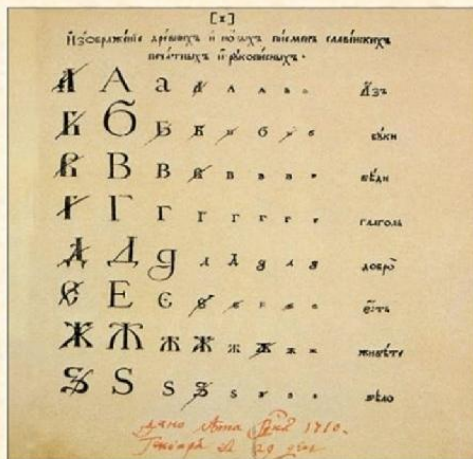 [1]
Изображенїе дре́внихъ и но́выхъ писменъ славе́нскихъ
печа́тныхъ и рꙋкопи́сныхъ.
А А а а а а а а А҆́зъ
Б Б Б Б Б б б б бꙋ́ки
В В В В В В В В вѣ́ди
Г Г Г Г Г Г Г Г глаго́ль
Д Д д д Д д д д добро̀
Е Е Є Є Е Е е е є҆́сть
Ж Ж Ж Ж Ж Ж ж ж живѣ́те
Ѕ Ѕ ѕ Ѕ ѕ ѕ ѕ ѕ ѕѣло̀
дано лѣта Гдня 1710.
Генваря въ 29 день.